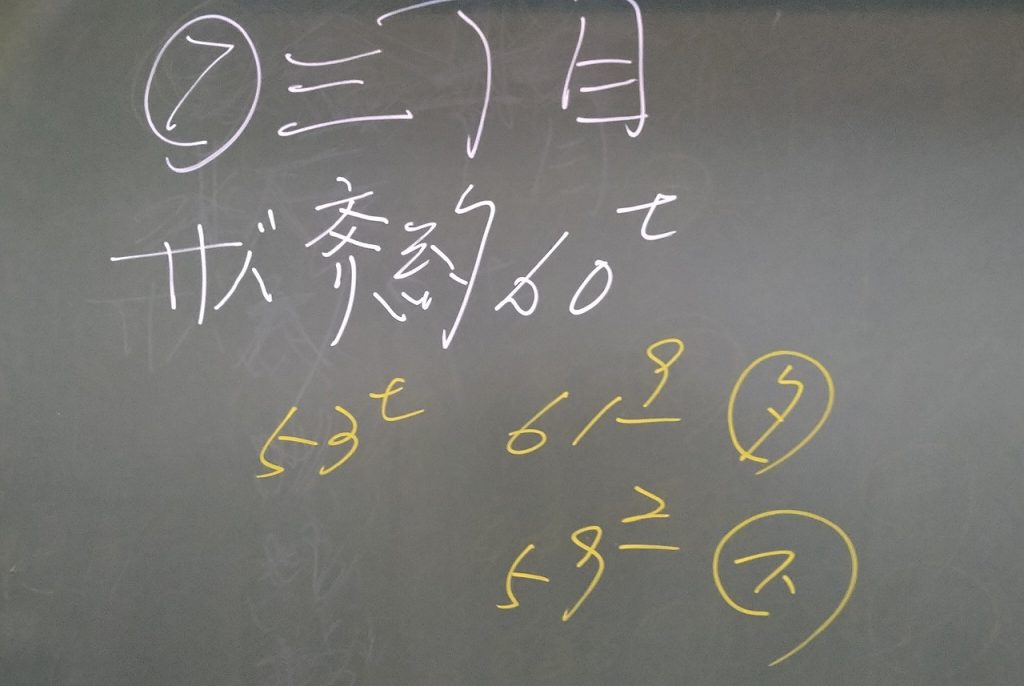 ⑦三丁目
ザバ斉約60t
53t 61 9 タ
59 2 ス